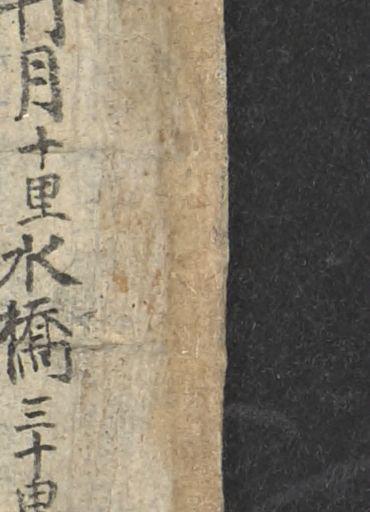 月十里水橋三十里